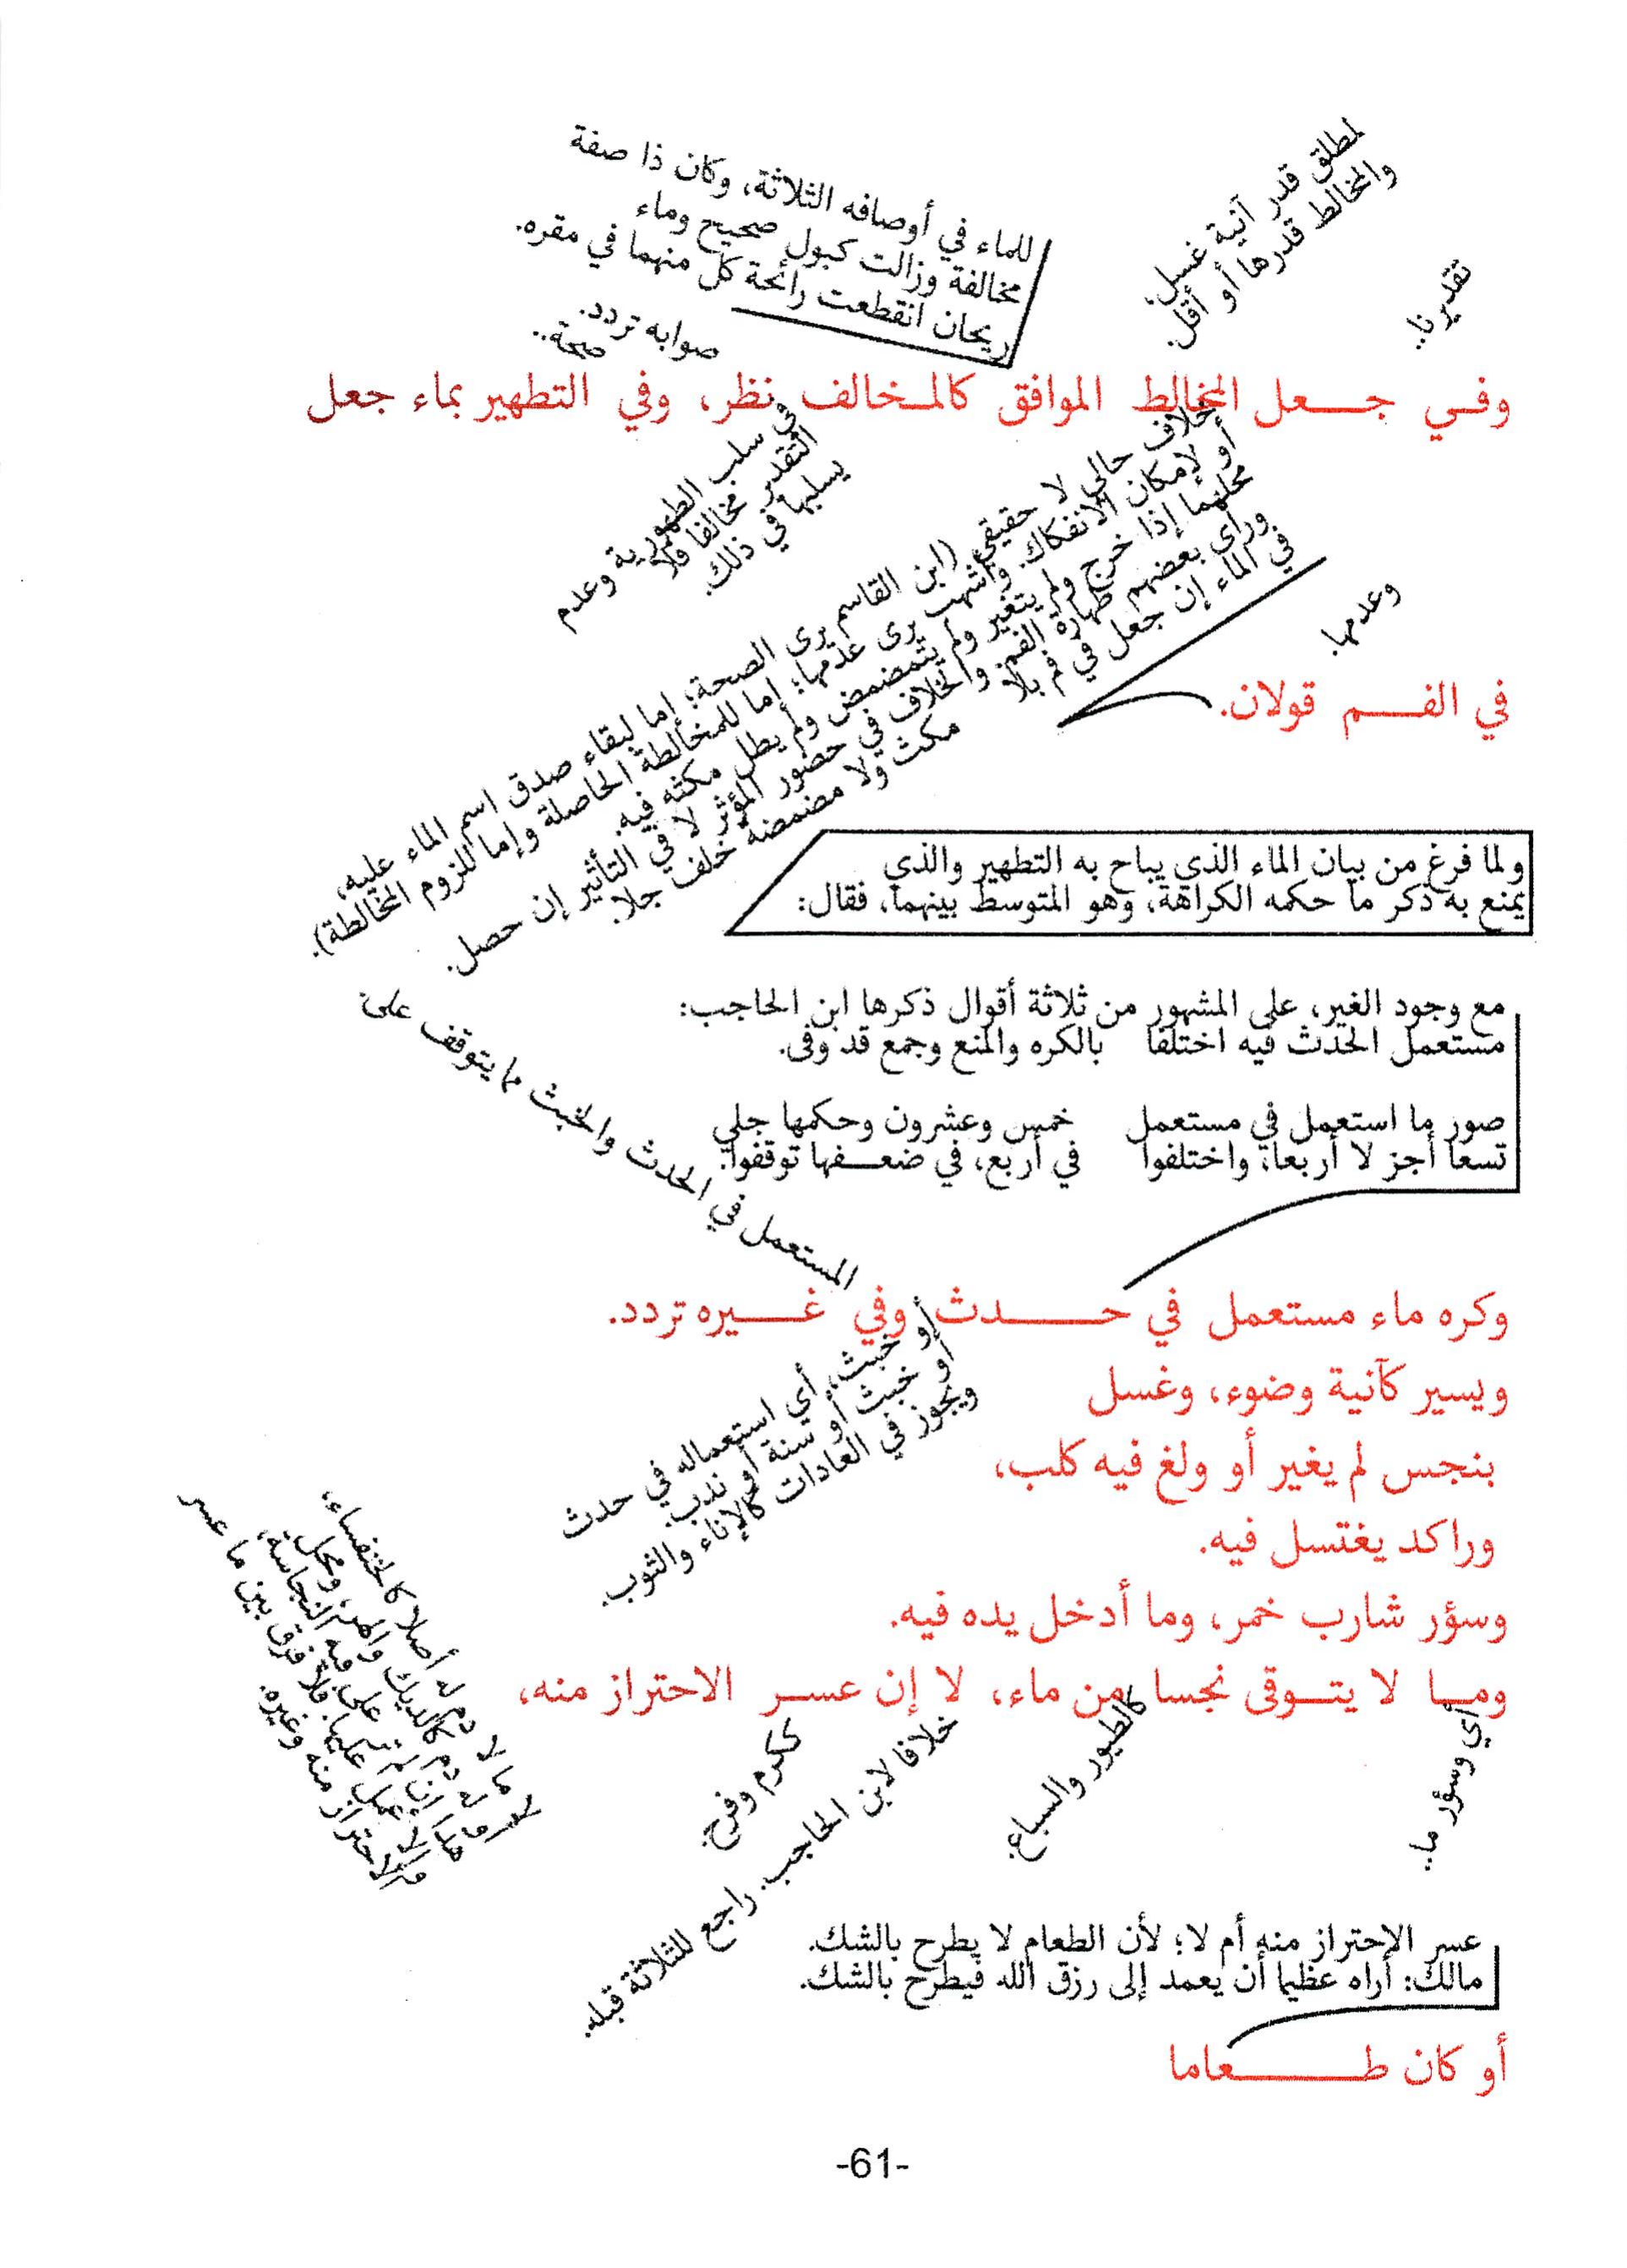 لمطلق قدر آنية غسل،
والمخالط قدرها أو أقل.
تقديرنا..
للماء في أوصافه الثلاثة، وكان ذا صفة
مخالفة وزالت كبول صحيح وماء
ريحان انقطعت رائحة كل منهما في مقره.
صوابه تردد.
صحة..
وفي جعل المخالط الموافق كالمخالف نظر، وفي التطهير بماء جعل
في سلب الطهورية وعدم
التقدير مخالفا فلا
يسلبها في ذلك.
خلاف حالي لا حقيقي (ابن القاسم يرى الصحة؛ إما لبقاء صدق اسم الماء عليه،
أو لإمكان الانفكاك. وأشهب يرى عدمها؛ إما للمخالطة الحاصلة وإما للزوم المخالطة).
محلهما إذا خرج ولم يتغير ولم يتمضمض ولم يطل مكثه فيه.
ورأى بعضهم طهارة الفم: والخلاف في حضور المؤثر لا في التأثير إن حصل.
في الماء إن جعل في فم بلا
مكث ولا مضمضة خلف جلا.
وعدمها.
في الفم قولان.
ولما فرغ من بيان الماء الذي يباح به التطهير والذي
يمنع به ذكر ما حكمه الكراهة، وهو المتوسط بينهما، فقال:
مع وجود الغير، على المشهور من ثلاثة أقوال ذكرها ابن الحاجب:
مستعمل الحدث فيه اختلفا بالكره والمنع وجمع قد وفى.
صور ما استعمل في مستعمل خمس وعشرون وحكمها جلي
تسعا أجز لا أربعا، واختلفوا في أربع، في ضعفها توقفوا.
المستعمل في الحدث والخبث مما يتوقف على.
وكره ماء مستعمل في حدث وفي غيره تردد.
أو خبث، أي استعماله في حدث
أو خبث أو سنة أو ندب.
ويجوز في العادات كالإناء والثوب.
ويسير كآنية وضوء، وغسل
بنجس لم يغير أو ولغ فيه كلب،
وراكد يغتسل فيه.
وسؤر شارب خمر، وما أدخل يده فيه.
وما لا يتوقى نجسا من ماء، لا إن عسر الاحتراز منه،
أي وسؤر ما..
كالطيور والسباع.
خلافا لابن الحاجب. راجع للثلاثة قبله.
ككرم وفرح.
لا ما لا دم له أصلا كالخنفساء،
أو له دم كالديك والهر، ومحل
هذا إن لم تر على فيه النجاسة،
وإلا عمل عليها. فلا فرق بين ما عسر
الاحتراز منه وغيره.
عسر الاحتراز منه أم لا؛ لأن الطعام لا يطرح بالشك.
مالك: أراه عظيما أن يعمد إلى رزق الله فيطرح بالشك.
أو كان طعاما
-61-